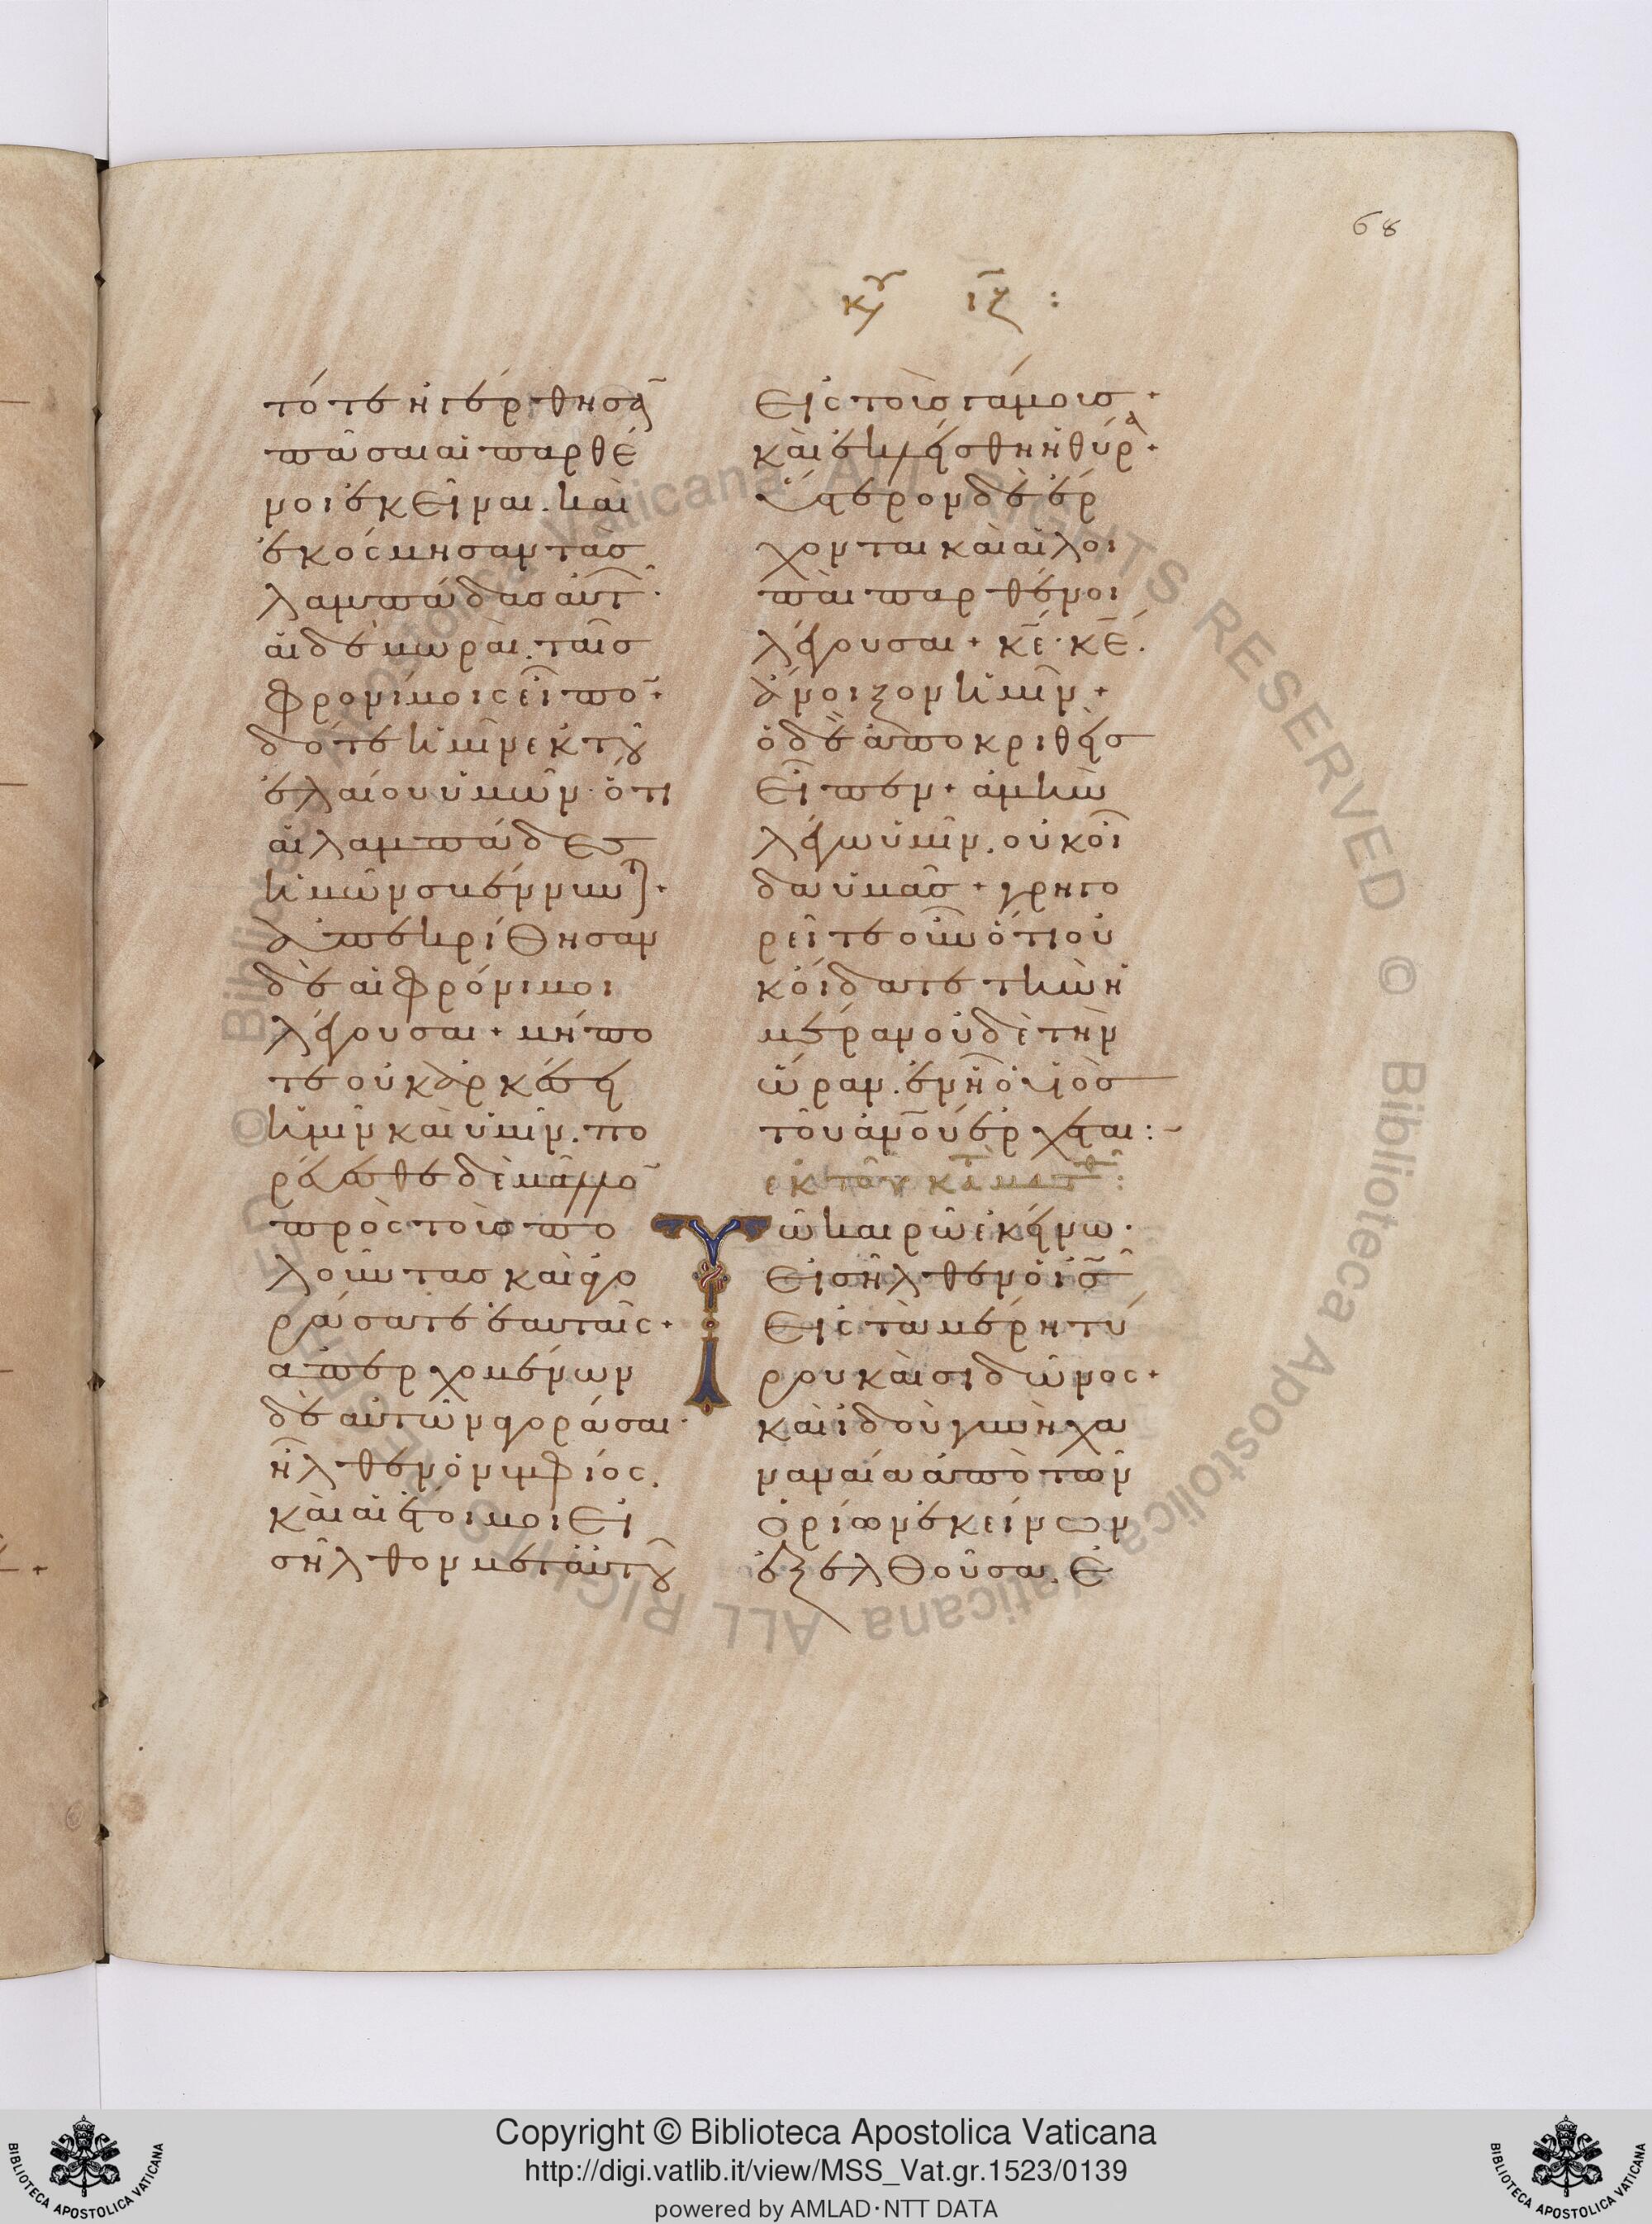 68
κυ ιζ :
τότε ἠγέρθησᾱ
πᾶσαι αἱ παρθέ
νοι ἐκεῖναι. καὶ
ἐκόσμησαν τὰς
λαμπάδας αὐτ̑·
αἱ δὲ μωραὶ. ταῖς
φρονίμοις εἶπο̄·
δότε ἡμῖν ἐκ τοῦ
ἐλαίου ὑμῶν· ὅτι
αἱ λαμπάδες
ἡμῶν σβέννυντ·
ἀπεκρίθησαν
δὲ αἱ φρόνιμοι
λέγουσαι + μήπο
τε οὐκ ἀρκέσει
ἡμῖν καὶ ὑμῖν. πο
ρεύεσθε δὲ μᾶλλο̄
πρὸς τοὺς πω
λοῦντας καὶ ἀγο
ράσατε ἑαυταῖς +
ἀπερχομένων
δὲ αὐτῶν ἀγοράσαι·
ἦλθεν ὁ νυμφίος.
καὶ αἱ ἕτοιμοι εἰ
σῆλθον μετ αὐτοῦ
εἰς τοὺς γάμους +
καὶ ἐκλείσθη ἡ θύρα +
ὕστερον δὲ ἔρ
χονται καὶ αἱ λοι
παὶ παρθένοι
λέγουσαι + κ̄ε̄· κ̄ε̄·
ἄνοιξον ἡμῖν +
ὁ δὲ ἀποκριθεὶς
εἶπεν + ἀμὴν
λέγω ὑμῖν. οὐκ οἶ
δα ὑμᾶς + γρηγο
ρεῖτε οὖν ὅτι οὐ
κ οἴδατε τὴν ἡ
μέραν οὐδὲ τὴν
ὥραν. ἐν ᾗ ὁ υἱὸς
τοῦ ἀνου ἔρχεται :-
ἐκ τοῦ κατὰ ματθ :
Τῶ καιρῶ ἐκείνω·
εἰσῆλθεν ὁ ι̅ς̅
εἰς τὰ μέρη τύ
ρου καὶ σιδῶνος +
καὶ ἰδοὺ γυνὴ χα
ναναία ἀπὸ τῶν
ὁρίων ἐκείνων
ἐξελθοῦσα. ἐ
Copyright © Biblioteca Apostolica Vaticana
http://digi.vatlib.it/view/MSS_Vat.gr.1523/0139
powered by AMLAD·NTT DATA